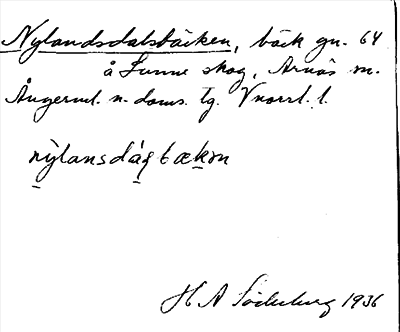 Nylandsdalsbäcken, bäck gn. 64
å Sunne skog, Arnäs sn.
Ångerml. n. doms. tg. Vnorrl. l.
nỳlansdágbækɷn
H A Söderberg 1936